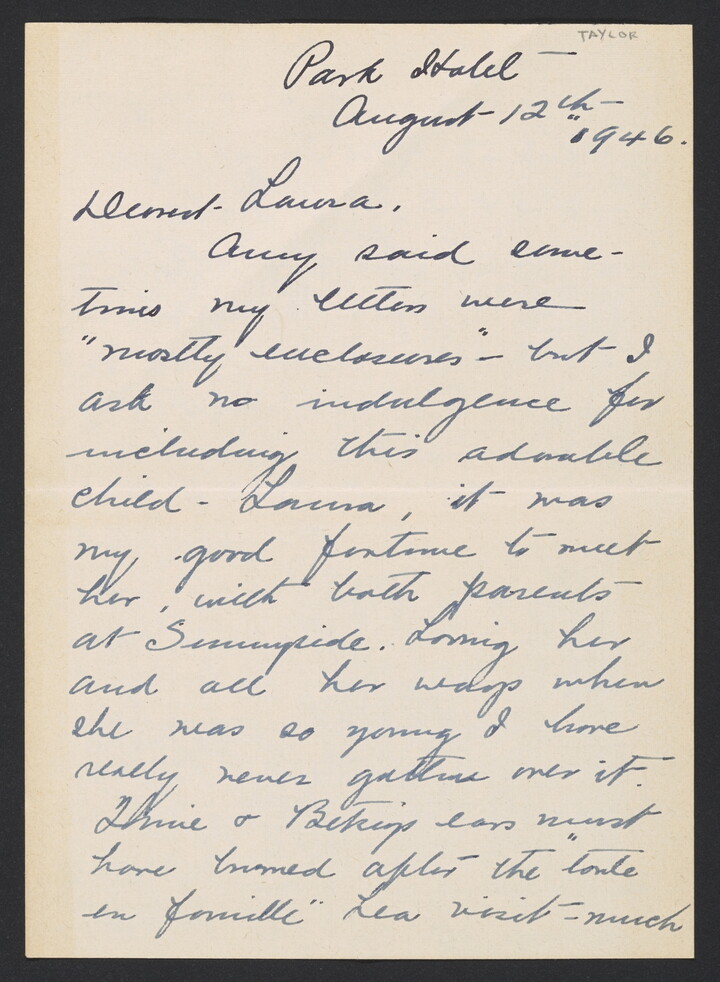 TAYLOR
Park Hotel —
August 12th —
1946.
Dearest Laura.
Amy said some-
times my letters were
"mostly enclosures" – but I
ask no indulgence for
including this adorable
child – Laura, it was
my good fortune to meet
her, with both parents
at Sunnyside. Loving her
and all her ways when
she was so young I have
really never gotten over it.
& Betsey's ears must
have burned after the "toute
en famille" Lea visit – much